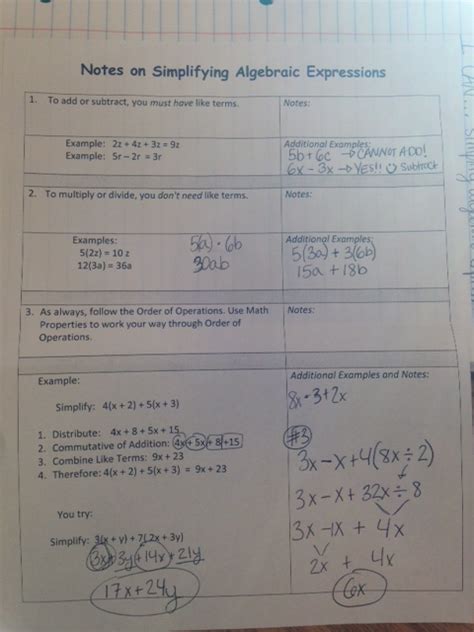 Notes on Simplifying Algebraic Expressions
1. To add or subtract, you must have like terms.
Notes:
Example: 2z + 4z + 3z = 9z
Example: 5r – 2r = 3r
Additional Examples:
5b + 6c → CANNOT ADD!
6x - 3x → YES!! Subtract
2. To multiply or divide, you don't need like terms.
Notes:
Examples:
5(2z) = 10 z
12(3a) = 36a
5(a) · 6b
30ab
Additional Examples:
5(3a) + 3(6b)
15a + 18b
3. As always, follow the Order of Operations. Use Math
Properties to work your way through Order of
Operations.
Notes:
Example:
Simplify: 4(x + 2) + 5(x + 3)
1. Distribute: 4x + 8 + 5x + 15
2. Commutative of Addition: 4x + 5x + 8 + 15
3. Combine Like Terms: 9x + 23
4. Therefore: 4(x + 2) + 5(x + 3) = 9x + 23
You try:
Simplify: 3(x + y) + 7(2x + 3y)
3x + 3y + 14x + 21y
17x + 24y
Additional Examples and Notes:
8x - 3 + 2x
#3
3x - x + 4(8x ÷ 2)
3x - x + 32x ÷ 8
3x - 1x + 4x
2x + 4x
6x